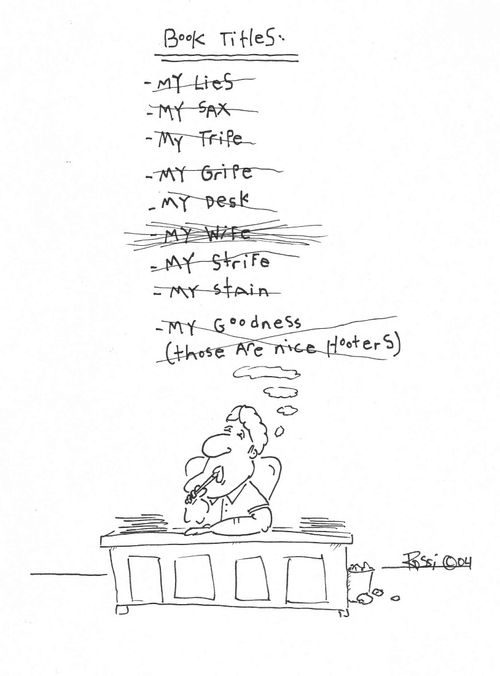 Book Titles:
- MY Lies
- MY SAX
- My Tripe
- MY Gripe
- MY Desk
- MY Wife
- MY Strife
- MY Stain
- MY Goodness
(those Are nice Hooters)
Rossi ©04